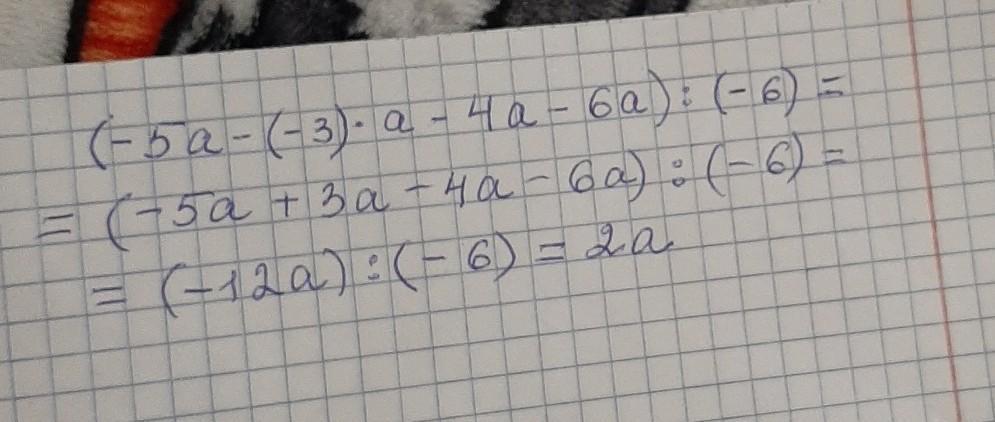 (-5a-(-3)·a-4a-6a):(-6)=
=(-5a+3a-4a-6a):(-6)=
=(-12a):(-6)=2a